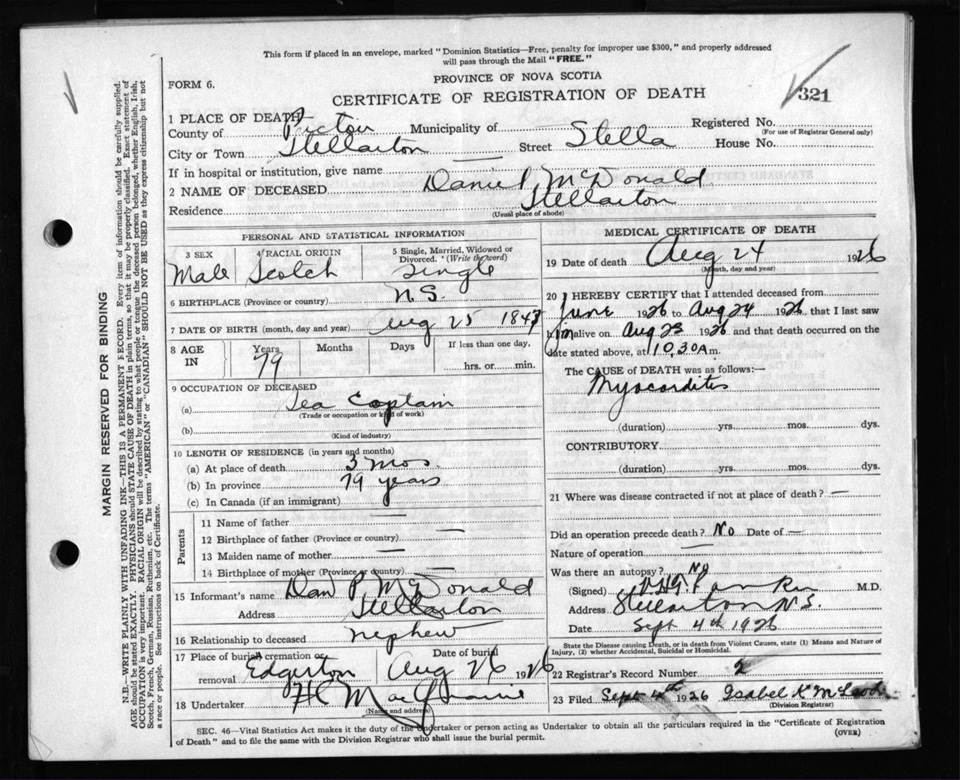 This form if placed in an envelope, marked "Dominion Statistics—Free, penalty for improper use $300," and properly addressed
will pass through the Mail "FREE."
PROVINCE OF NOVA SCOTIA
FORM 6.
CERTIFICATE OF REGISTRATION OF DEATH
321
1 PLACE OF DEATH
County of Pictou Municipality of Registered No.
(For use of Registrar General only)
City or Town Stellarton Street Stella House No.
If in hospital or institution, give name —
2 NAME OF DECEASED Daniel McDonald
Residence Stellarton
(Usual place of abode)
PERSONAL AND STATISTICAL INFORMATION
3 SEX Male
4 RACIAL ORIGIN Scotch
5 Single, Married, Widowed or Divorced. (Write the word) Single
6 BIRTHPLACE (Province or country) N.S.
7 DATE OF BIRTH (month, day and year) Aug 25 1847
8 AGE IN Years 79 Months Days If less than one day, hrs. or min.
9 OCCUPATION OF DECEASED
(a) Sea Captain
(Trade or occupation or kind of work)
(b)
(Kind of industry)
10 LENGTH OF RESIDENCE (in years and months)
(a) At place of death 3 mos.
(b) In province 79 years
(c) In Canada (if an immigrant)
Parents
11 Name of father —
12 Birthplace of father (Province or country) —
13 Maiden name of mother —
14 Birthplace of mother (Province or country) —
15 Informant's name Dan P. McDonald
Address Stellarton
16 Relationship to deceased nephew
17 Place of burial cremation or removal Edgerton Date of burial Aug 26 1926
18 Undertaker H C
(Name and address)
MEDICAL CERTIFICATE OF DEATH
19 Date of death Aug 24 1926
(Month, day and year)
20 I HEREBY CERTIFY that I attended deceased from
June 1926 to Aug 24 1926 that I last saw
him alive on Aug 23 1926 and that death occurred on
date stated above, at 10.30 A m.
The CAUSE of DEATH was as follows:—
Myocarditis
(duration) yrs. mos. dys.
CONTRIBUTORY
(duration) yrs. mos. dys.
21 Where was disease contracted if not at place of death? —
Did an operation precede death? No Date of —
Nature of operation —
Was there an autopsy? No
(Signed) M.D.
Address Stellarton N.S.
Date Sept 4th 1926
State the Disease causing Death, or in death from Violent Causes, state (1) Means and Nature of
Injury, (2) whether Accidental, Suicidal or Homicidal.
22 Registrar's Record Number 2
23 Filed Sept 4th 1926 Isabel K McLeod
(Division Registrar)
SEC. 46—Vital Statistics Act makes it the duty of the Undertaker or person acting as Undertaker to obtain all the particulars required in the "Certificate of Registration
of Death" and to file the same with the Division Registrar who shall issue the burial permit. (OVER)
MARGIN RESERVED FOR BINDING
N.B.—WRITE PLAINLY WITH UNFADING INK—THIS IS A PERMANENT RECORD. Every item of information should be carefully supplied.
AGE should be stated EXACTLY. PHYSICIANS should STATE CAUSE OF DEATH in plain terms, so that it may be properly classified. Exact statement of
OCCUPATION is very important. RACIAL ORIGIN will be described by stating to what people or tongue the deceased person belonged, whether English, Irish,
Scotch, French, German, Russian, Ruthenian, etc. The terms "AMERICAN" or "CANADIAN" SHOULD NOT BE USED as they express citizenship but not
a race or people. See instructions on back of Certificate.